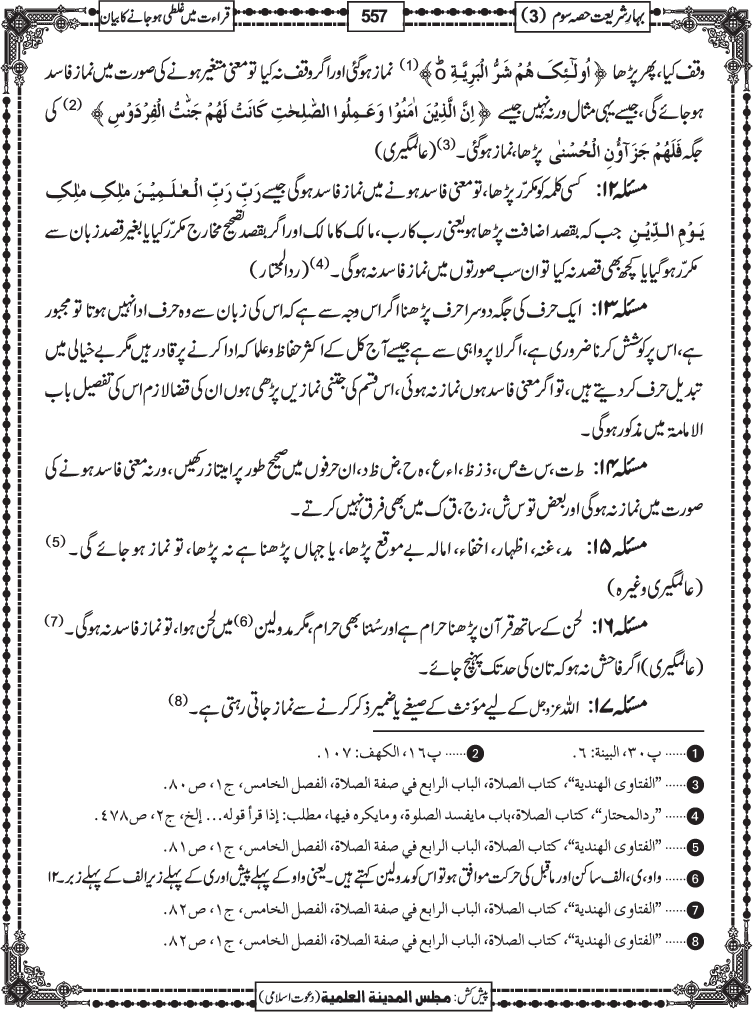 بہارِ شریعت حصہ سوم (3)
557
قراءت میں غلطی ہوجانے کا بیان
وقف کیا، پھر پڑھا ﴿ اُولٰٓئِکَ هُمْ شَرُّ الْبَرِیَّةِ ؕ۝ ﴾(1) نماز ہوگئی اور اگر وقف نہ کیا تو معنی متغیر ہونے کی صورت میں نماز فاسد
ہوجائے گی، جیسے یہی مثال ورنہ نہیں جیسے ﴿ اِنَّ الَّذِیْنَ اٰمَنُوْا وَعَمِلُوا الصّٰلِحٰتِ کَانَتْ لَهُمْ جَنّٰتُ الْفِرْدَوْسِ ﴾ (2) کی
جگہ فَلَهُمْ جَزَآؤُنِ الْحُسْنٰی پڑھا، نماز ہوگئی۔(3) (عالمگیری)
مسئلہ ۱۲: کسی کلمہ کو مکرّر پڑھا، تو معنی فاسد ہونے میں نماز فاسد ہوگی جیسے رَبِّ رَبِّ الْعٰلَمِیْنَ مٰلِکِ مٰلِکِ
یَوْمِ الدِّیْنِ جب کہ بقصد اضافت پڑھا ہو یعنی رب کا رب، مالک کا مالک اور اگر بقصد تصحیح مخارج مکرّر کیا یا بغیر قصد زبان سے
مکرّر ہوگیا یا کچھ بھی قصد نہ کیا تو ان سب صورتوں میں نماز فاسد نہ ہوگی۔(4) (ردالمحتار)
مسئلہ ۱۳: ایک حرف کی جگہ دوسرا حرف پڑھنا اگر اس وجہ سے ہے کہ اس کی زبان سے وہ حرف ادا نہیں ہوتا تو مجبور
ہے، اس پر کوشش کرنا ضروری ہے، اگر لاپرواہی سے ہے جیسے آج کل کے اکثر حفاظ و علما کہ ادا کرنے پر قادر ہیں مگر بے خیالی میں
تبدیل حرف کر دیتے ہیں، تو اگر معنی فاسد ہوں نماز نہ ہوئی، اس قسم کی جتنی نمازیں پڑھی ہوں ان کی قضا لازم اس کی تفصیل باب
الامامۃ میں مذکور ہوگی۔
مسئلہ ۱۴: ط ت، س ث ص، ذ ز ظ، ا ء ع، ہ ح، ض ظ د، ان حرفوں میں صحیح طور پر امتیاز رکھیں، ورنہ معنی فاسد ہونے کی
صورت میں نماز نہ ہوگی اور بعض تو س ش، ز ج، ق ک میں بھی فرق نہیں کرتے۔
مسئلہ ۱۵: مد، غنہ، اظہار، اخفاء، امالہ بے موقع پڑھا، یا جہاں پڑھنا ہے نہ پڑھا، تو نماز ہو جائے گی۔(5)
(عالمگیری وغیرہ)
مسئلہ ۱۶: لحن کے ساتھ قرآن پڑھنا حرام ہے اور سُننا بھی حرام، مگر مد و لین(6) میں لحن ہوا، تو نماز فاسد نہ ہوگی۔(7)
(عالمگیری) اگر فاحش نہ ہو کہ تان کی حد تک پہنچ جائے۔
مسئلہ ۱۷: اللہ عزوجل کے لیے مؤنث کے صیغے یا ضمیر ذکر کرنے سے نماز جاتی رہتی ہے۔(8)
1 ...... پ۳۰، البینة: ۶. 2 ...... پ۱۶، الکھف: ۱۰۷.
3 ...... "الفتاوی الھندیة"، کتاب الصلاة، الباب الرابع في صفة الصلاة، الفصل الخامس، ج۱، ص۸۰.
4 ...... "ردالمحتار"، کتاب الصلاة، باب مایفسد الصلوة، ومایکرہ فیھا، مطلب: إذا قرأ قولہ... إلخ، ج۲، ص۴۷۸.
5 ...... "الفتاوی الھندیة"، کتاب الصلاة، الباب الرابع في صفة الصلاة، الفصل الخامس، ج۱، ص۸۱.
6 ...... واو، ی، الف ساکن اور ماقبل کی حرکت موافق ہو تو اس کو مد و لین کہتے ہیں۔ یعنی واو کے پہلے پیش اور ی کے پہلے زیر الف کے پہلے زبر۔ ۱۲
7 ...... "الفتاوی الھندیة"، کتاب الصلاة، الباب الرابع في صفة الصلاة، الفصل الخامس، ج۱، ص۸۲.
8 ...... "الفتاوی الھندیة"، کتاب الصلاة، الباب الرابع في صفة الصلاة، الفصل الخامس، ج۱، ص۸۲.
پیش کش: مجلس المدینة العلمیة (دعوت اسلامی)